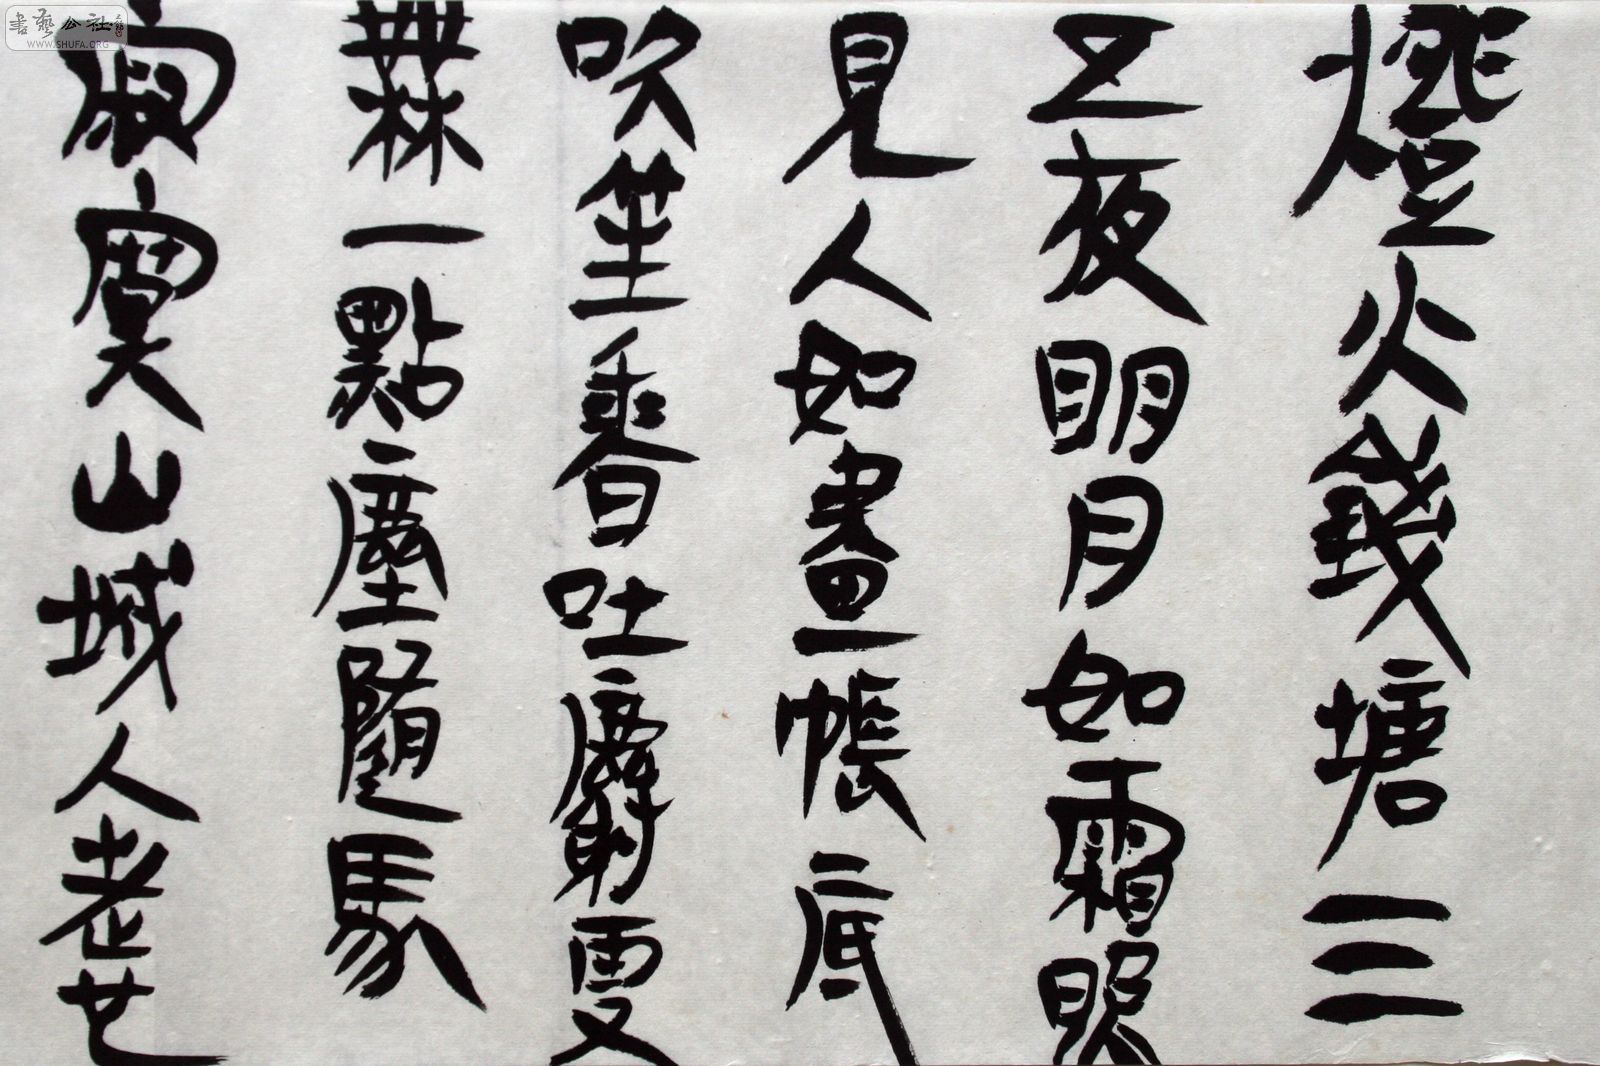 燈火錢塘三
五夜明月如霜照
見人如畫帳底
吹笙香吐麝更
無一點塵隨馬
寂寞山城人老也
書藝公社
WWW.SHUFA.ORG